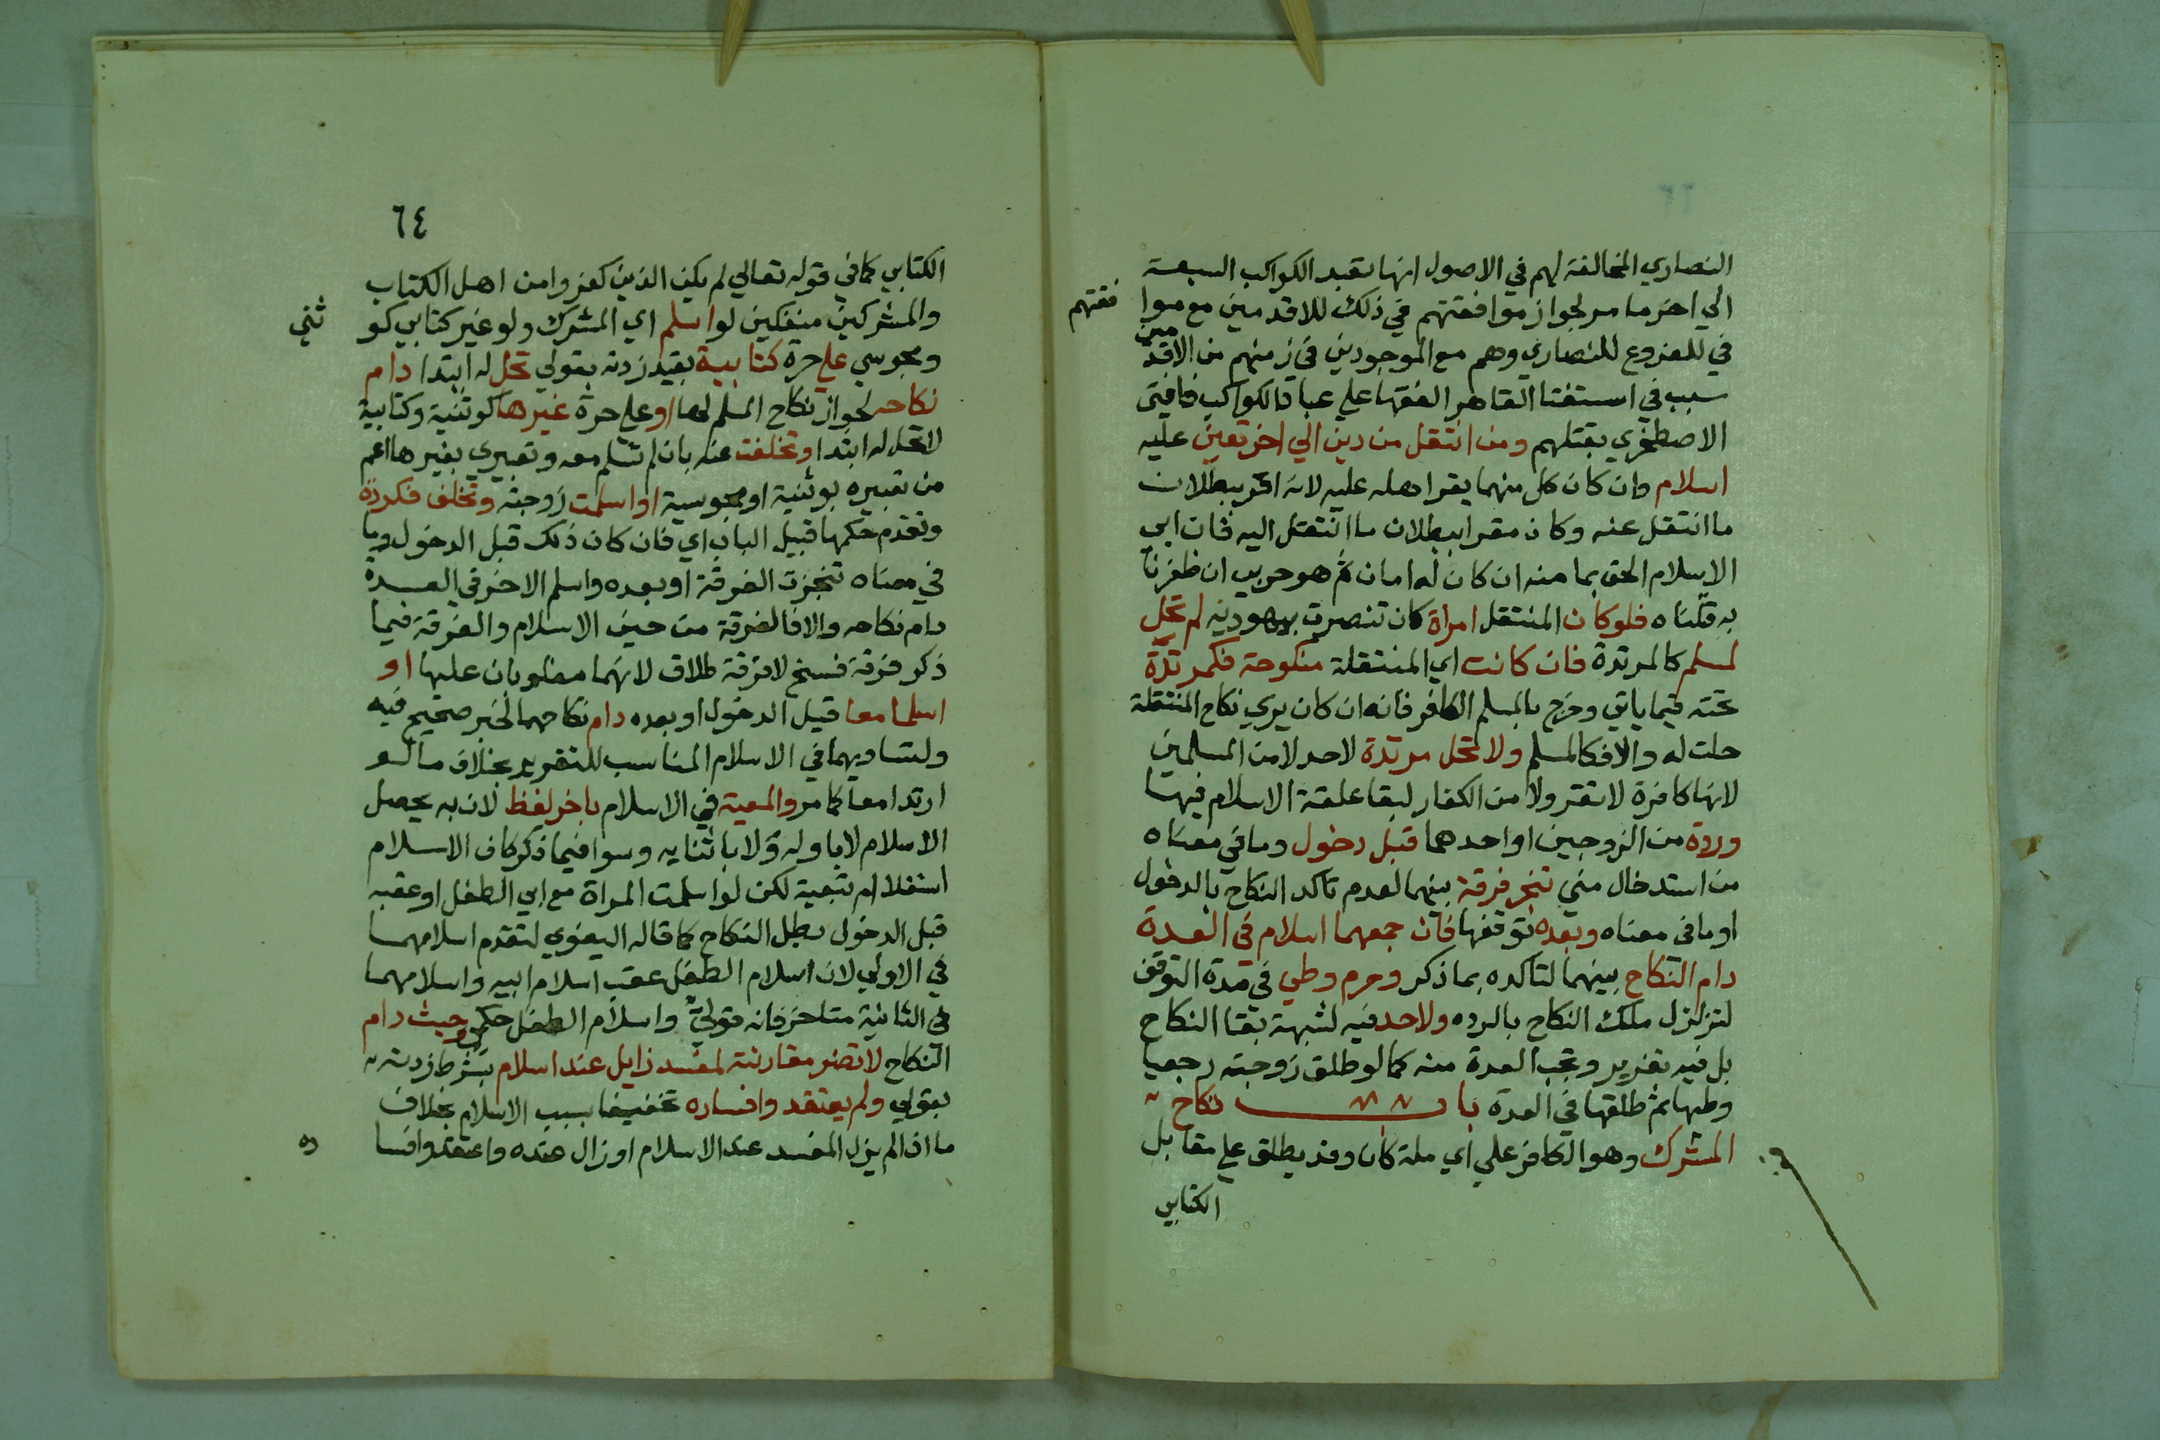 النصاري المخالفة لهم في الاصول انها تعبد الكواكب السبعة
الي اخر ما مر لجواز موافقتهم في ذلك للاقدمين مع موا
فقتهم
في للفروع للنصاري وهم مع الموجودين في زمنهم من الاقد
مين
سبب في استفتا القاهر الفقها علي عباد الكواكب فافتي
الاصطخري بقتلهم ومن انتقل من دين الي اخر تعين عليه
اسلام وان كان كل منهما يقر اهله عليه لانه اقر ببطلان
ما انتقل عنه وكان مقرا ببطلان ما انتقل اليه فان ابي
الاسلام الحق بمامنه ان كان له امان ثم هو حربي ان ظفرنا
به قتلناه فلو كان المنتقل امراة كان تنصرت يهودية لم تحل
لمسلم كالمرتدة فان كانت اي المنتقلة منكوحة فكمرتدة
تحته فيما ياتي وخرج بالمسلم الكافر فانه ان كان يري نكاح المنتقلة
حلت له والا فكالمسلم ولا تحل مرتدة لاحد لا من المسلمين
لانها كافرة لا تقر ولا من الكفار لبقا علقة الاسلام فيها
وردة من الزوجين او احدهما قبل دخول وما في معناه
من استدخال مني تنجز فرقة بينهما لعدم تاكد النكاح بالدخول
او ما في معناه وبعده توقفها فان جمعهما اسلام في العدة
دام النكاح بينهما لتاكده بما ذكر وحرم وطي في مدة التوقف
لتزلزل ملك النكاح بالرده ولا حد فيه لشبهة بقا النكاح
بل فيه تعزير وتجب العدة منه كما لو طلق زوجته رجعيا
وطيها ثم طلقها في العدة باب نكاح
المشرك وهو الكافر علي اي ملة كان وقد يطلق علي مقابل
الكتابي
٦٤
الكتابي كما في قوله تعالي لم يكن الذين كفروا من اهل الكتاب
والمشركين منفكين لو اسلم اي المشرك ولو غير كتابي كو
ثني
ومجوسي علي حرة كتابية بقيد زدته بقولي تحل له ابتدا دام
نكاحه لجواز نكاح المسلم لها او علي حرة غيرها كوثنية وكتابية
لا تحل له ابتدا وتخلفت عنه بان لم تسلم معه وتعبيري بغيرها اعم
من تعبيره بوثنية او مجوسية او اسلمت زوجته وتخلف فكردة
وتقدم حكمها قبيل الباب اي فان كان ذلك قبل الدخول وما
في معناه تنجزت الفرقة او بعده واسلم الاخر في العدة
دام نكاحه والا فالفرقة من حين الاسلام والفرقة فيما
ذكر فرقة فسخ لا فرقة طلاق لانهما مغلوبان عليها او
اسلما معا قبل الدخول او بعده دام نكاحهما لخبر صحيح فيه
ولتساويهما في الاسلام المناسب للتقرير بخلاف ما لو
ارتدا معا كما مر والمعية في الاسلام باخر لفظ لان به يحصل
الاسلام لا باوله ولا باثنايه وسوا فيما ذكر كان الاسلام
استقلالا ام تبعية لكن لو اسلمت المراة مع ابي الطفل او عقبه
قبل الدخول بطل النكاح كما قاله البغوي لتقدم اسلامهما
في الاولي لان اسلام الطفل عقب اسلام ابيه واسلامهما
في الثانية متاخر فانه قولي واسلام الطفل حكمي وحيث دام
النكاح لا تضر مقارنته لمفسد زايل عند اسلام بشرط زدته
بقولي ولم يعتقدوا فساده تخفيفا بسبب الاسلام بخلاف
ما اذا لم يزل المفسد عند الاسلام او زال عنده واعتقدوا فسا
ده